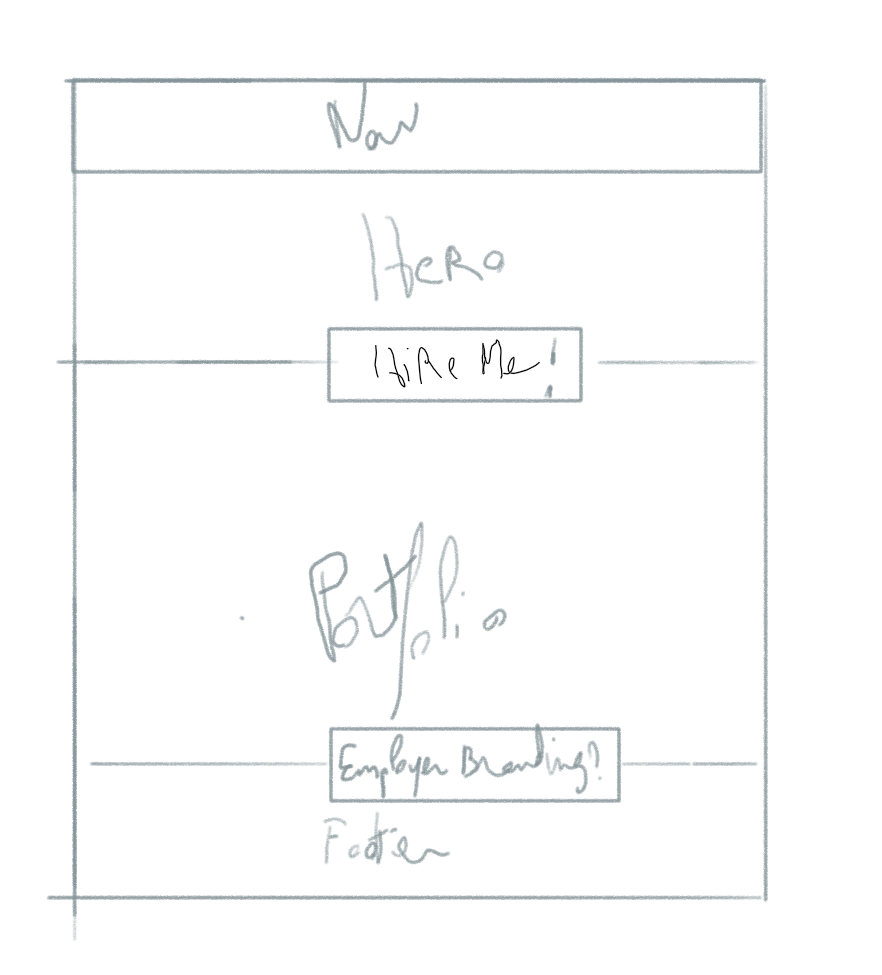 Nav
Hero
Hire Me!
Portfolio
Employer Branding?
Footer